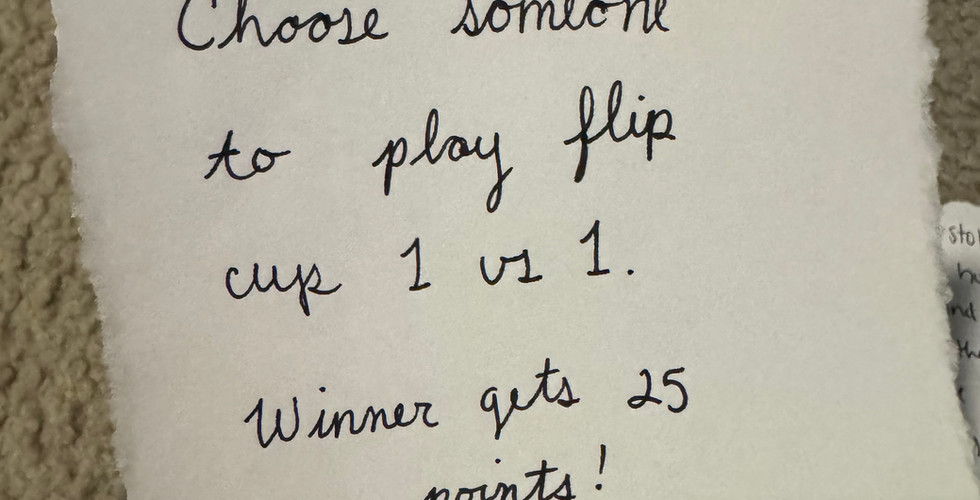 Choose someone
to play flip
cup 1 vs 1.
Winner gets 25
points!